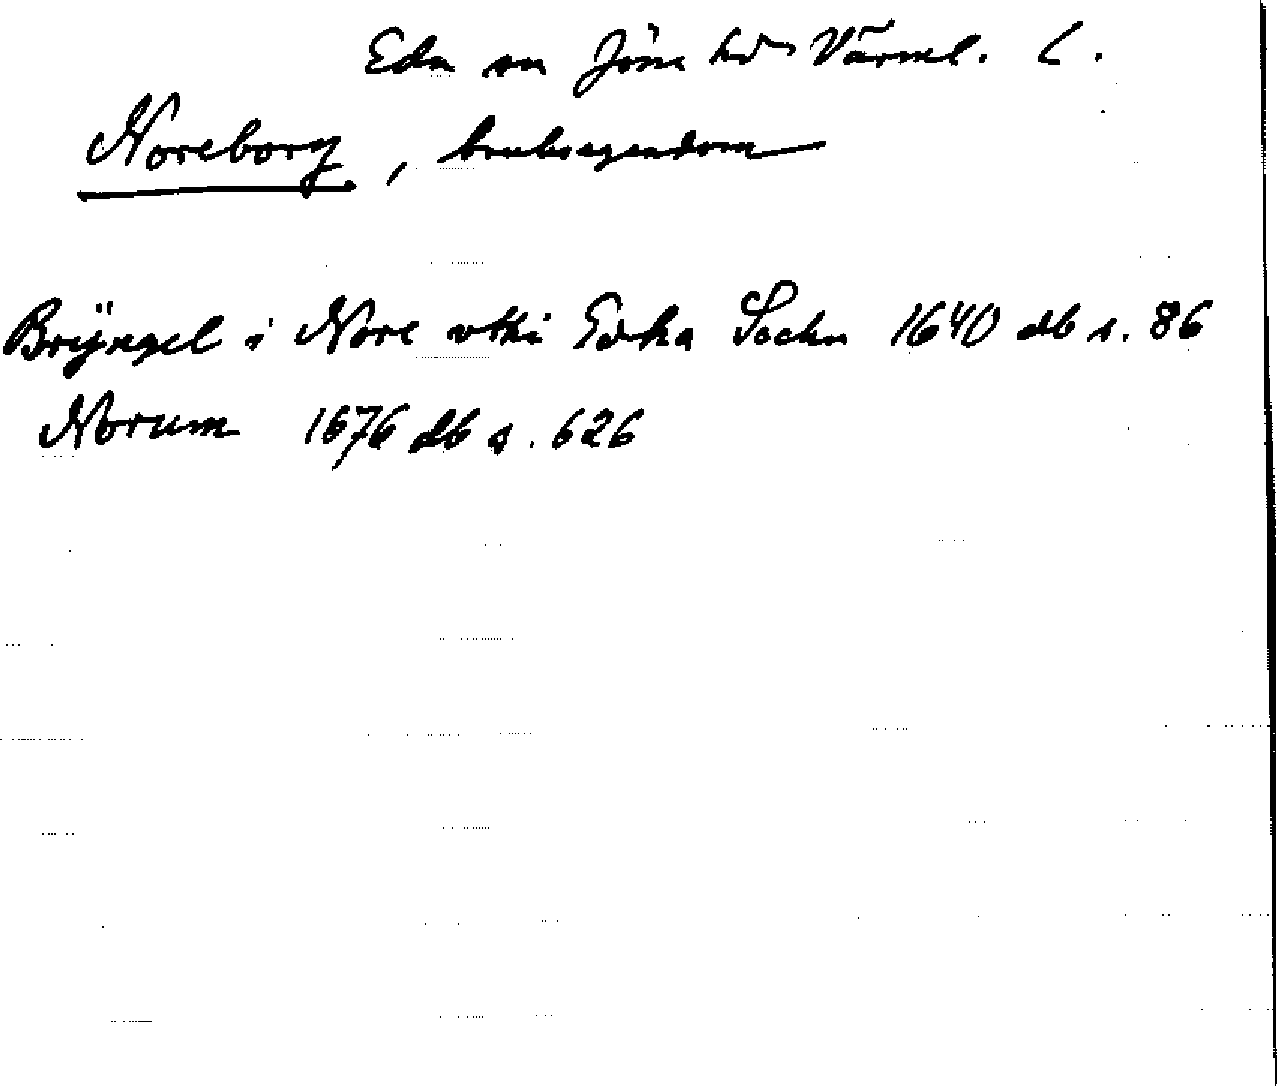 Eda sn Jösse hd Värml. L.
Noreborg, bruksegendom
Brÿngel i Nore uthi Edha Sochn 1640 db s. 86
Norum 1676 db s. 626